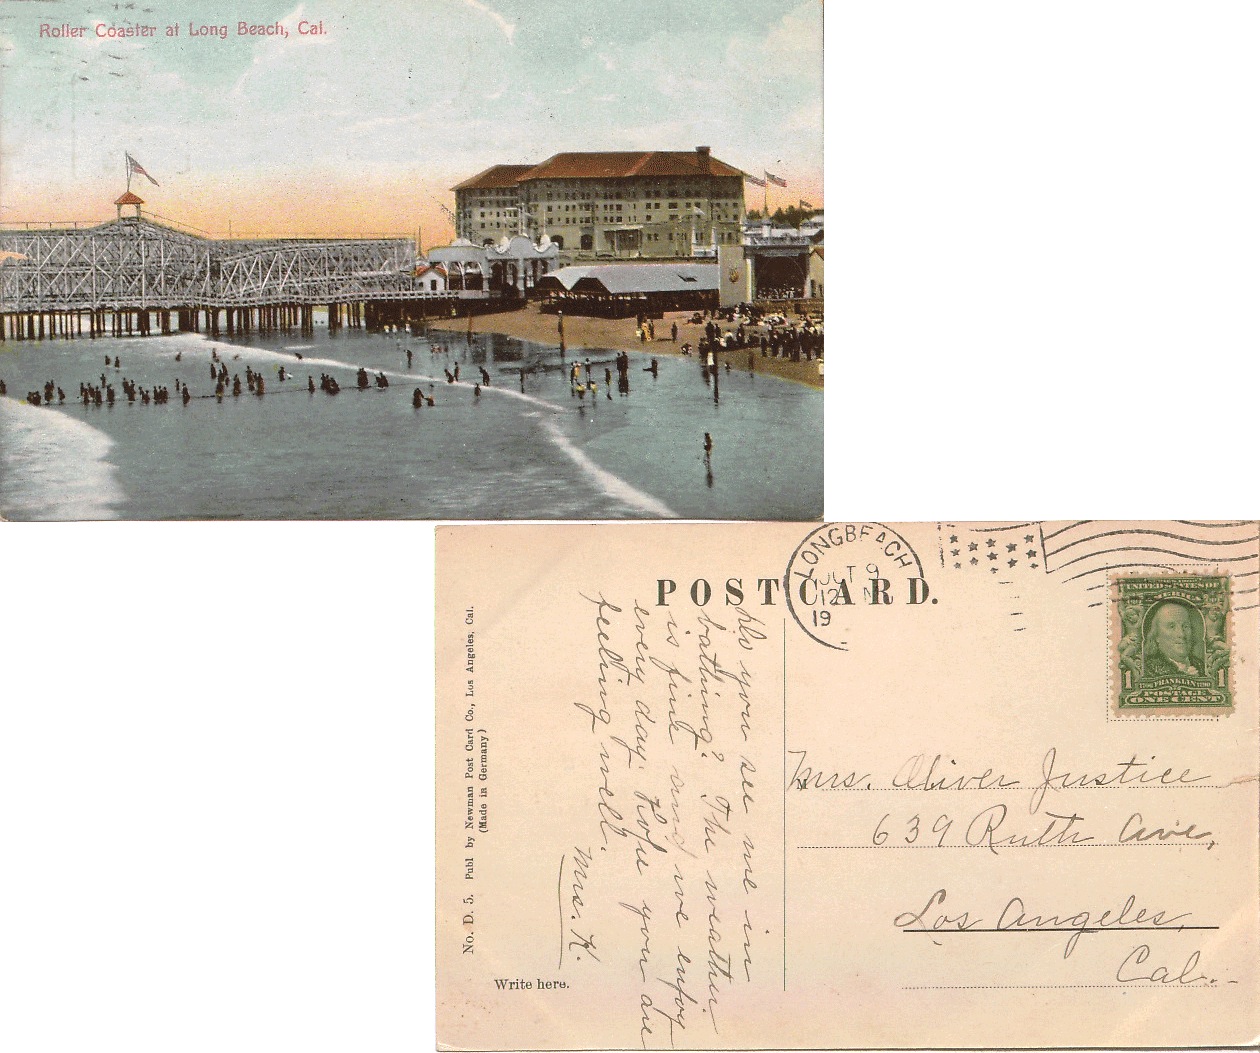 Roller Coaster at Long Beach, Cal.
POST CARD.
LONG BEACH
9
12 M
19
UNITED STATES OF
AMERICA
1 FRANKLIN 1
POSTAGE
ONE CENT
No. D. 5. Publ by Newman Post Card Co., Los Angeles, Cal.
(Made in Germany)
Do you see me in
bathing? The weather
is fine and we enjoy
every day. Hope you are
feeling well.
Mrs. K.
Write here.
Mrs. Oliver Justice
639 Ruth Ave,
Los Angeles,
Cal.